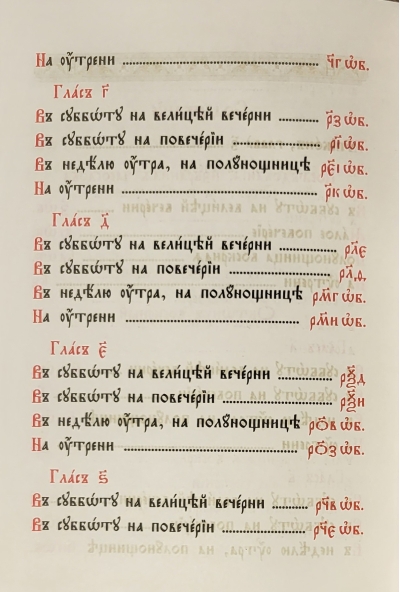 На ᲂу҆́трени ........ ч҃г ѡб.
Гла́съ г҃
Въ сꙋббѡ́тꙋ на вели́цѣй вече́рни ........ р҃з ѡб.
Въ сꙋббѡ́тꙋ на повече́рїи ........ р҃і ѡб.
Въ недѣ́лю ᲂу҆́тра, на полꙋно́щницѣ р҃еі ѡб.
На ᲂу҆́трени ........ р҃к ѡб.
Гла́съ д҃
Въ сꙋббѡ́тꙋ на вели́цѣй вече́рни ........ рл҃е
Въ сꙋббѡ́тꙋ на повече́рїи ........ рл҃ѳ.
Въ недѣ́лю ᲂу҆́тра, на полꙋно́щницѣ рм҃г ѡб.
На ᲂу҆́трени ........ рм҃и ѡб.
Гла́съ є҃
Въ сꙋббѡ́тꙋ на вели́цѣй вече́рни ........ рѯ҃д
Въ сꙋббѡ́тꙋ на повече́рїи ........ рѯ҃и
Въ недѣ́лю ᲂу҆́тра, на полꙋно́щницѣ ро҃в ѡб.
На ᲂу҆́трени ........ ро҃з ѡб.
Гла́съ ѕ҃
Въ сꙋббѡ́тꙋ на вели́цѣй вече́рни ........ рч҃в ѡб.
Въ сꙋббѡ́тꙋ на повече́рїи ........ рч҃е ѡб.